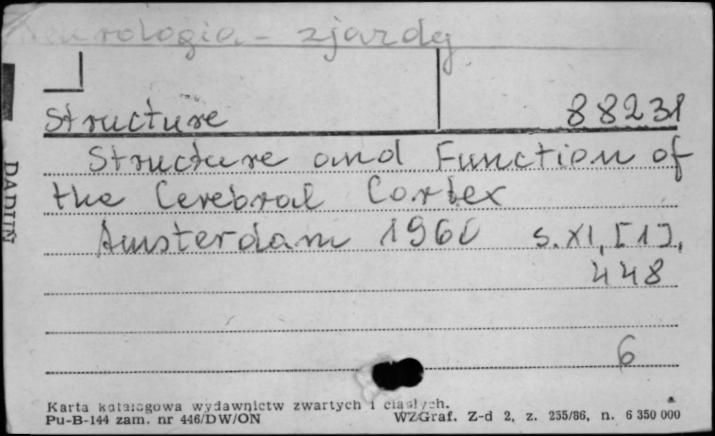 Neurologia - zjazdy
Structure 88231
Structure and Function of
the Cerebral Cortex
Amsterdam 1960 s. XI, [1],
448
6
RADUŃ
Karta katalogowa wydawnictw zwartych i ciągłych.
Pu-B-144 zam. nr 446/DW/ON WZGraf. Z-d 2, z. 235/86, n. 6 350 000